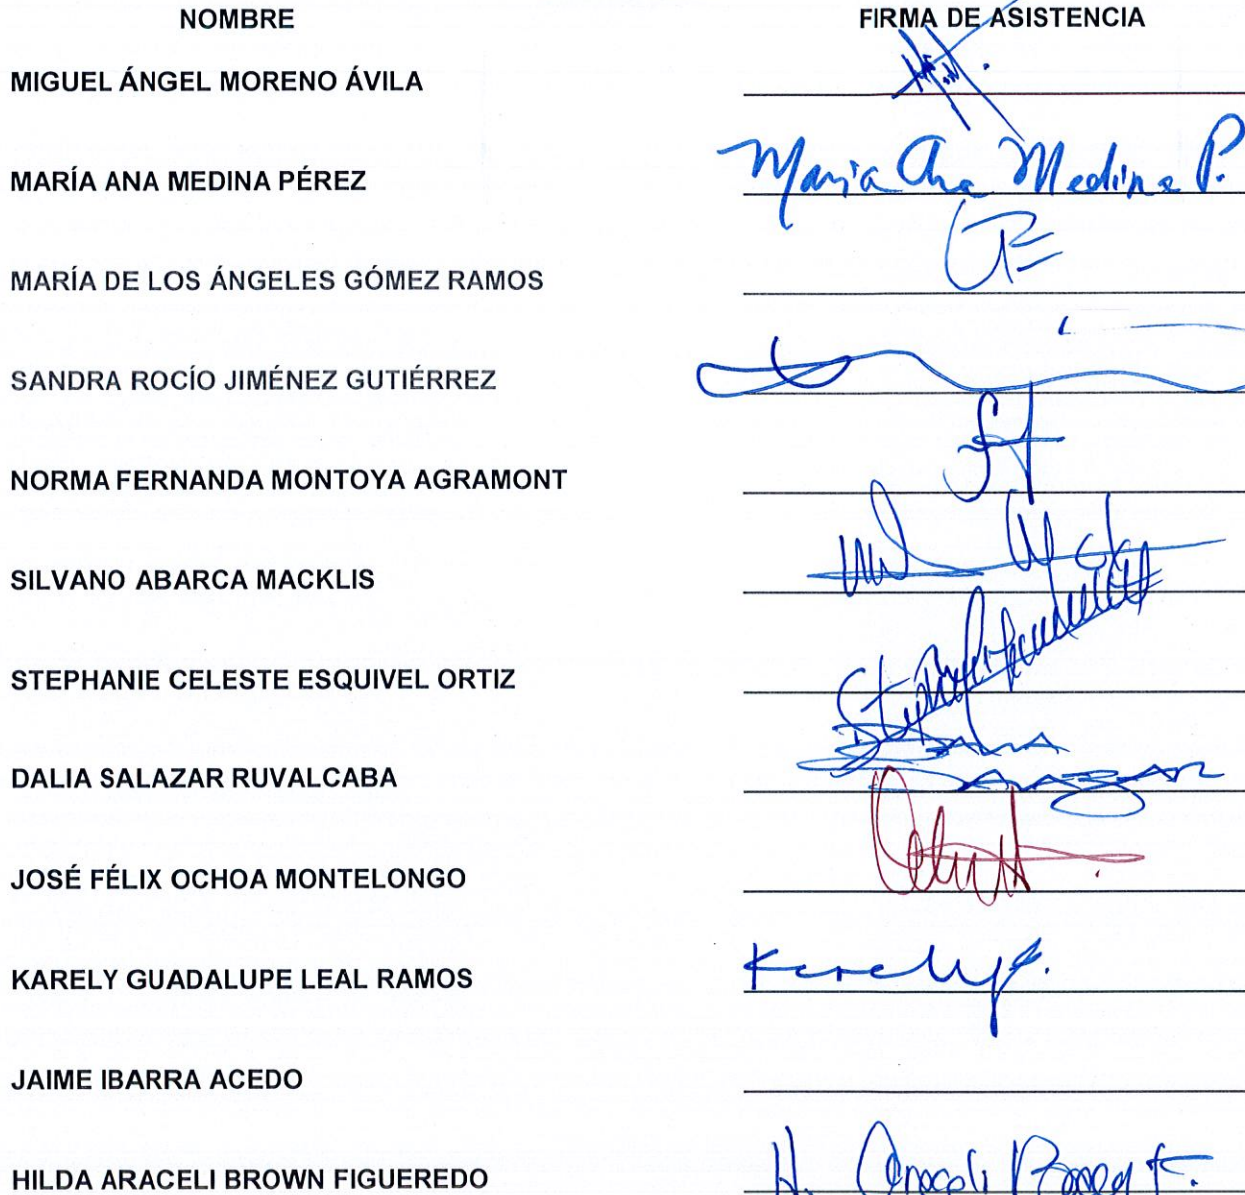 NOMBRE FIRMA DE ASISTENCIA
MIGUEL ÁNGEL MORENO ÁVILA
MARÍA ANA MEDINA PÉREZ Maria Ana Medina P.
MARÍA DE LOS ÁNGELES GÓMEZ RAMOS
SANDRA ROCÍO JIMÉNEZ GUTIÉRREZ
NORMA FERNANDA MONTOYA AGRAMONT
SILVANO ABARCA MACKLIS
STEPHANIE CELESTE ESQUIVEL ORTIZ
DALIA SALAZAR RUVALCABA DALIA SALAZAR
JOSÉ FÉLIX OCHOA MONTELONGO
KARELY GUADALUPE LEAL RAMOS Karely
JAIME IBARRA ACEDO
HILDA ARACELI BROWN FIGUEREDO H. Araceli Brown F.